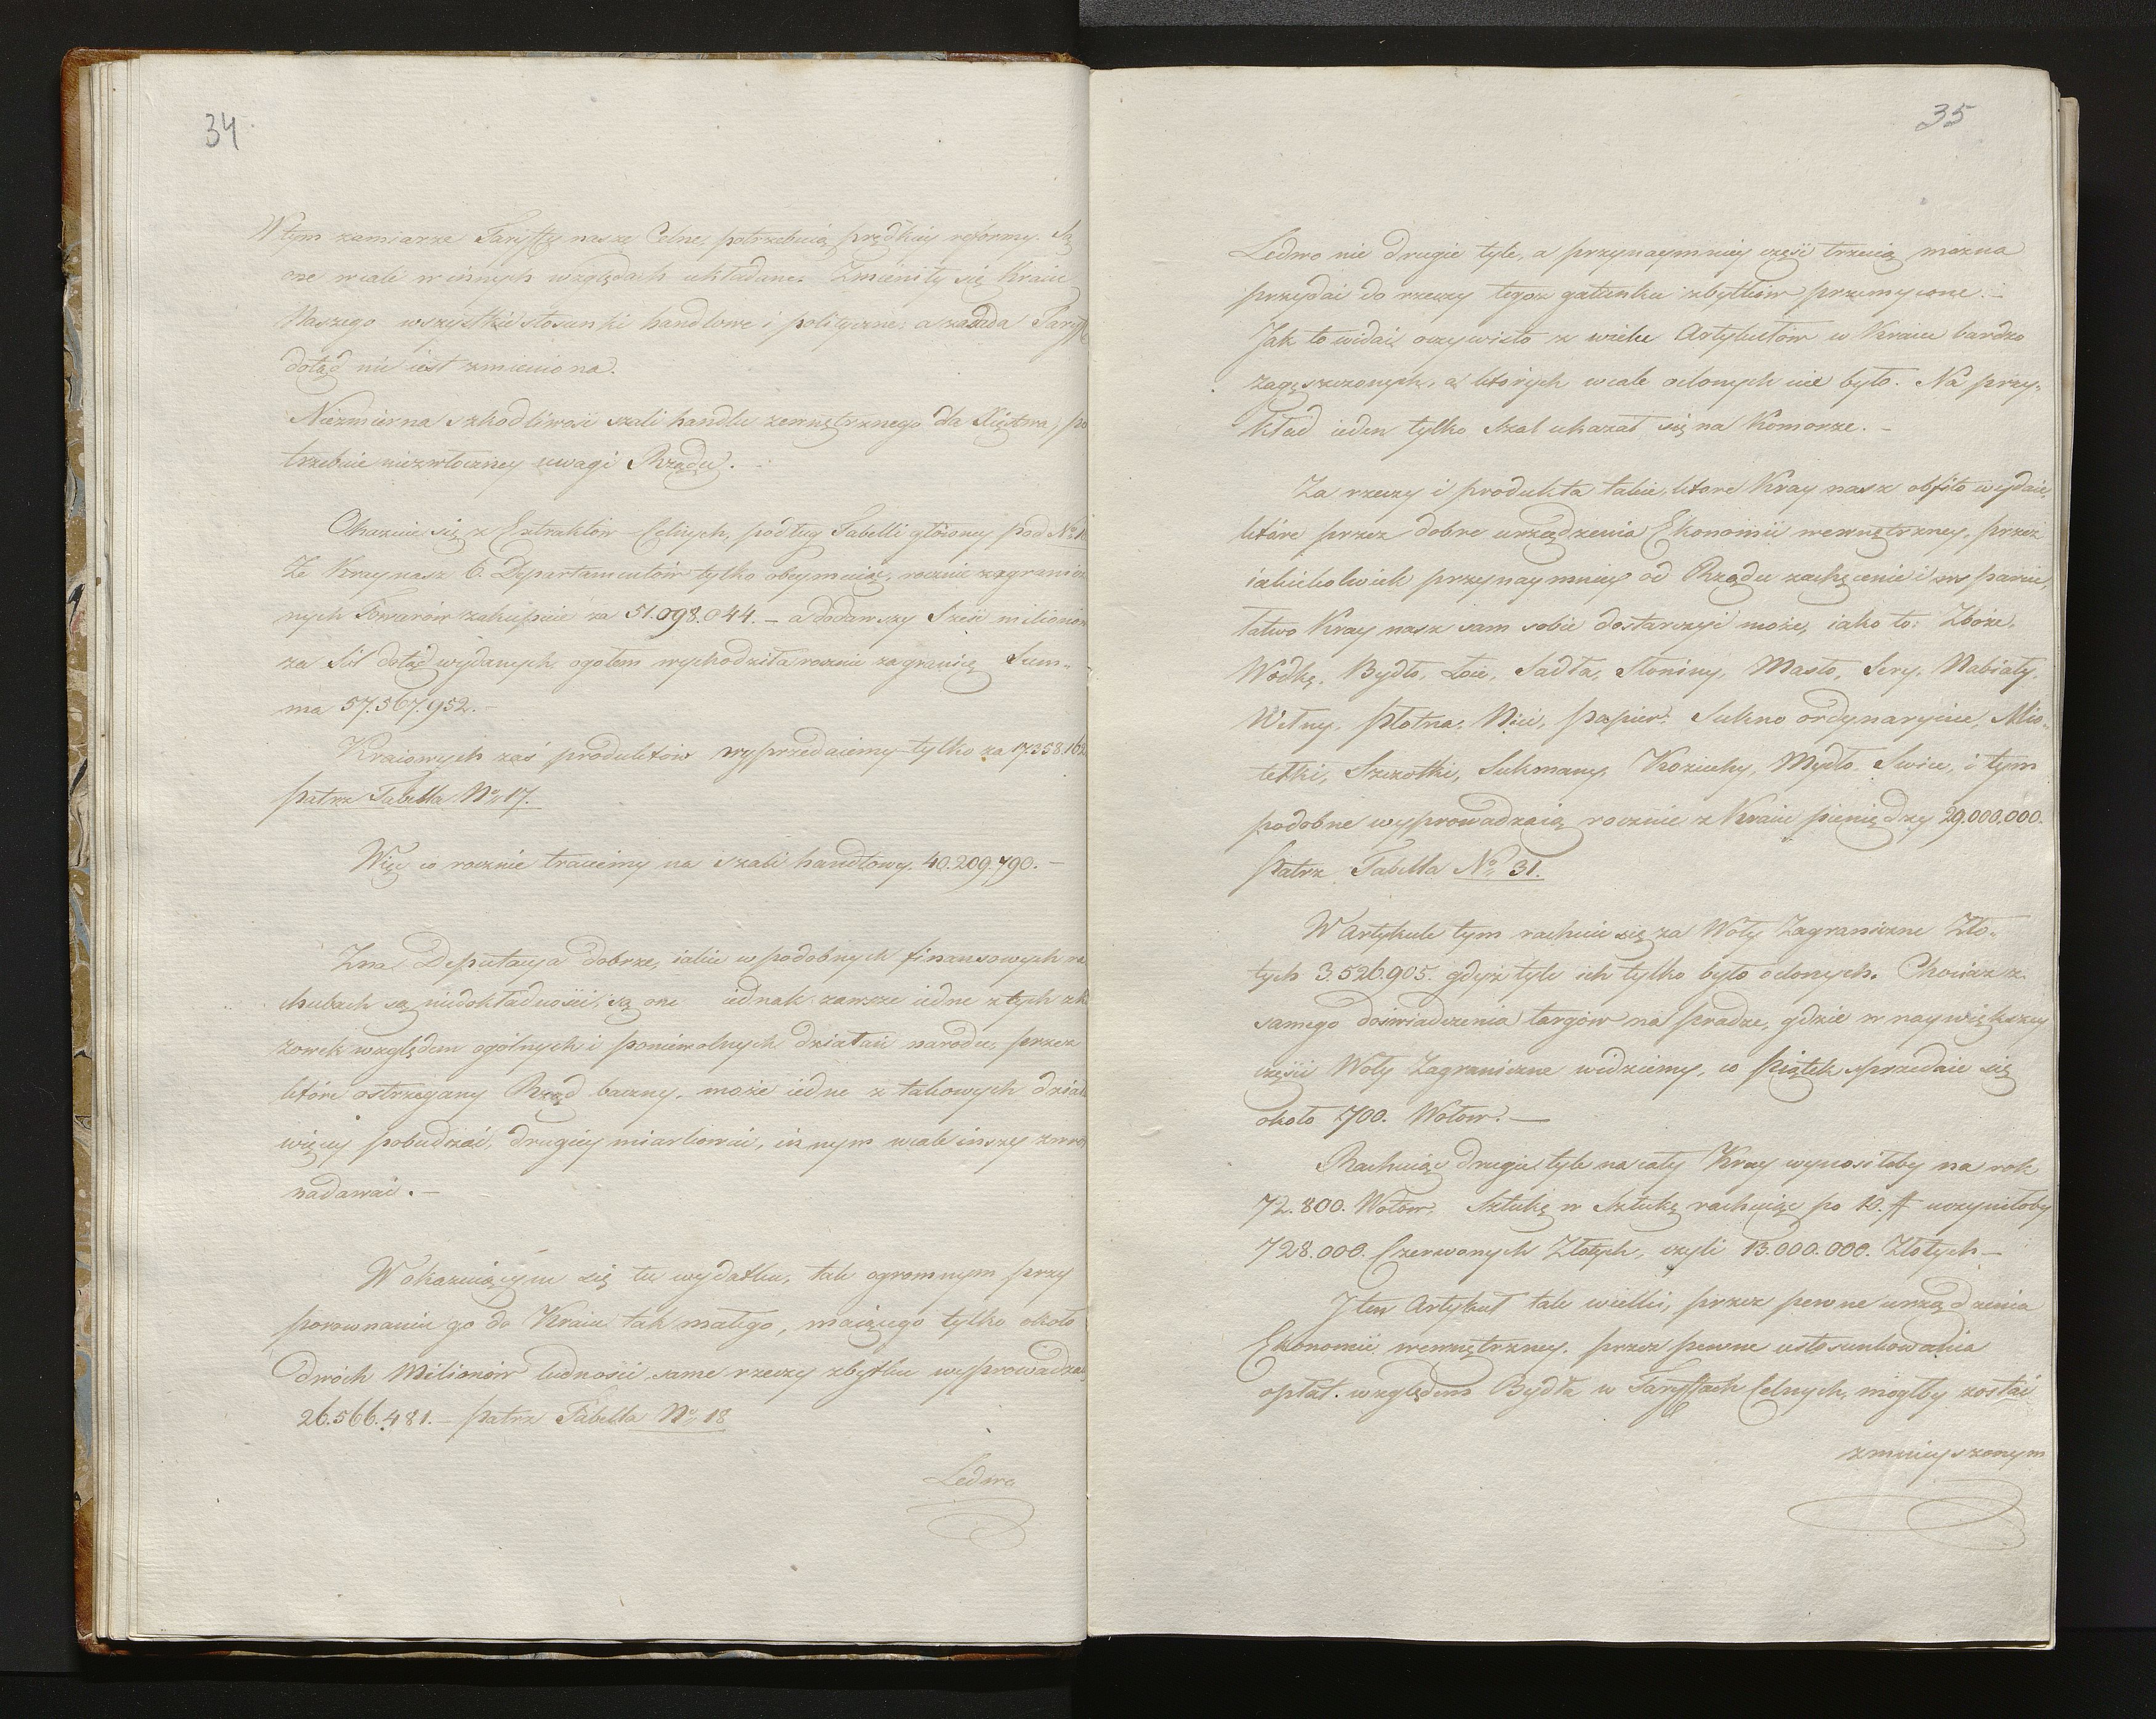 34
W tym zamiarze Taryffy nasze Celne, potrzebuią prędkiey reformy. Są
one wcale w innych względach układane. Zmieniły się Kraiu
Naszego wszystkie stosunki handlowe i polityczne, a zasada Taryff
dotąd nie iest zmieniona.
Niezmierna szkodliwość szali handlu zewnętrznego dla Xięstwa, po
trzebuie niezwłoczney uwagi Rządu.
Okazuie się z Extraktów Celnych, podług Tabelli główney pod No
Że Kray nasz 6. Departamentów tylko obeymuiąc, rocznie zagranicz
nych Towarów zakupuie za 51.098.044. – a dodawszy Sześć milionów
za Sól dotąd wydanych, ogołem wychodziła rocznie zagranicę Sum-
ma 57.567.952. –
Kraiowych zaś produktów wyprzedaiemy tylko za 17.358.162
patrz Tabella No 17.
Więc co rocznie tracimy na szali handlowey. 40.209.790. –
Zna Deputacya dobrze, iakie w podobnych finansowych ra
chubach są niedokładności, są one iednak zawsze iedne z tych
zówek względem ogólnych i poniewolnych działań narodu, przez
które ostrzegany Rząd baczny, może iedne z takowych dział
więcey pobudzać, drugiey miarkować, innym wcale inszy
nadawać. –
W okazuiącym się tu wydatku, tak ogromnym przy
porownaniu go do Kraiu tak małego, maiącego tylko około
dwóch Milionów ludności, same rzeczy zbytku wyprowadzaią
26.566.481. – patrz Tabella No 18
Ledwo
35
Ledwo nie drugie tyle, a przynaymniey część trzecią można
przydać do rzeczy tegoż gatunku zbytków przemycone. –
Jak to widać oczywisto z wielu Artykułów w Kraiu bardzo
zagęszczonych, a których wcale oclonych nie było. Na przy-
kład ieden tylko Szal ukazał się na Komorze. –
Za rzeczy i produkta takie, które Kray nasz obfito wydaie,
które przez dobre urządzenia Ekonomii wewnętrzney, przez
iakiekolwiek przynaymniey od Rządu zachęcenie i wsparcie,
łatwo Kray nasz sam sobie dostarczyć może, iako to: Zboże,
Wódkę, Bydło, Łoie, Sadła, Słoniny, Masło, Sery, Nabiały,
Wełny, płótna, Nici, papier, Sukno ordynaryine, Mio-
tełki, Szczotki, Sukmany, Kożuchy, Mydło, Swice, i tym
podobne wyprowadzaią rocznie z Kraiu pieniędzy 29.000.000.
Patrz Tabella No 31.
W Artykule tym rachuie się za Woły Zagraniczne Zło-
tych 3.526.905. gdyż tyle ich tylko było oclonych. Chociaż z
samego doświadczenia targów na pradze, gdzie w naywiększey
części Woły Zagraniczne widziemy, co piątek sprzedaie się
około 700. Wołów. –
Rachuiąc drugie tyle na cały Kray wynosiłoby na rok
72.800. Wołów, Sztukę w Sztukę rachuiąc po 10. # uczyniłoby
728.000. Czerwonych Złotych, czyli 13.000.000. Złotych –
I ten Artykuł tak wielki, przez pewne urządzenia
Ekonomii wewnętrzney, przez pewne ustosunkowania
opłat względem Bydła w Taryffach Celnych, mógłby zostać
zmnieyszonym